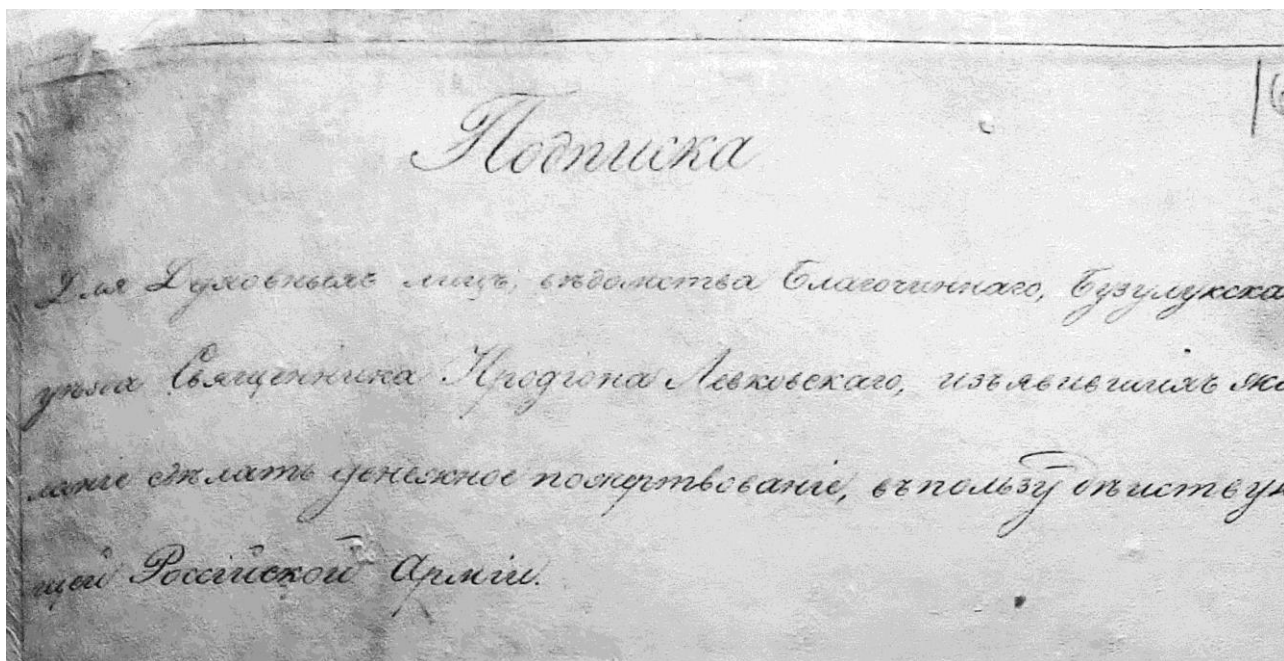 16
Подписка
Для Духовныхъ лицъ, вѣдомства Благочиннаго, Бузулукска
уѣзда Священника Иродіона Левковскаго, изъявившихъ же
ланіе сдѣлать денежное пожертвованіе, въ пользу дѣйствую
щей Россійской Арміи.